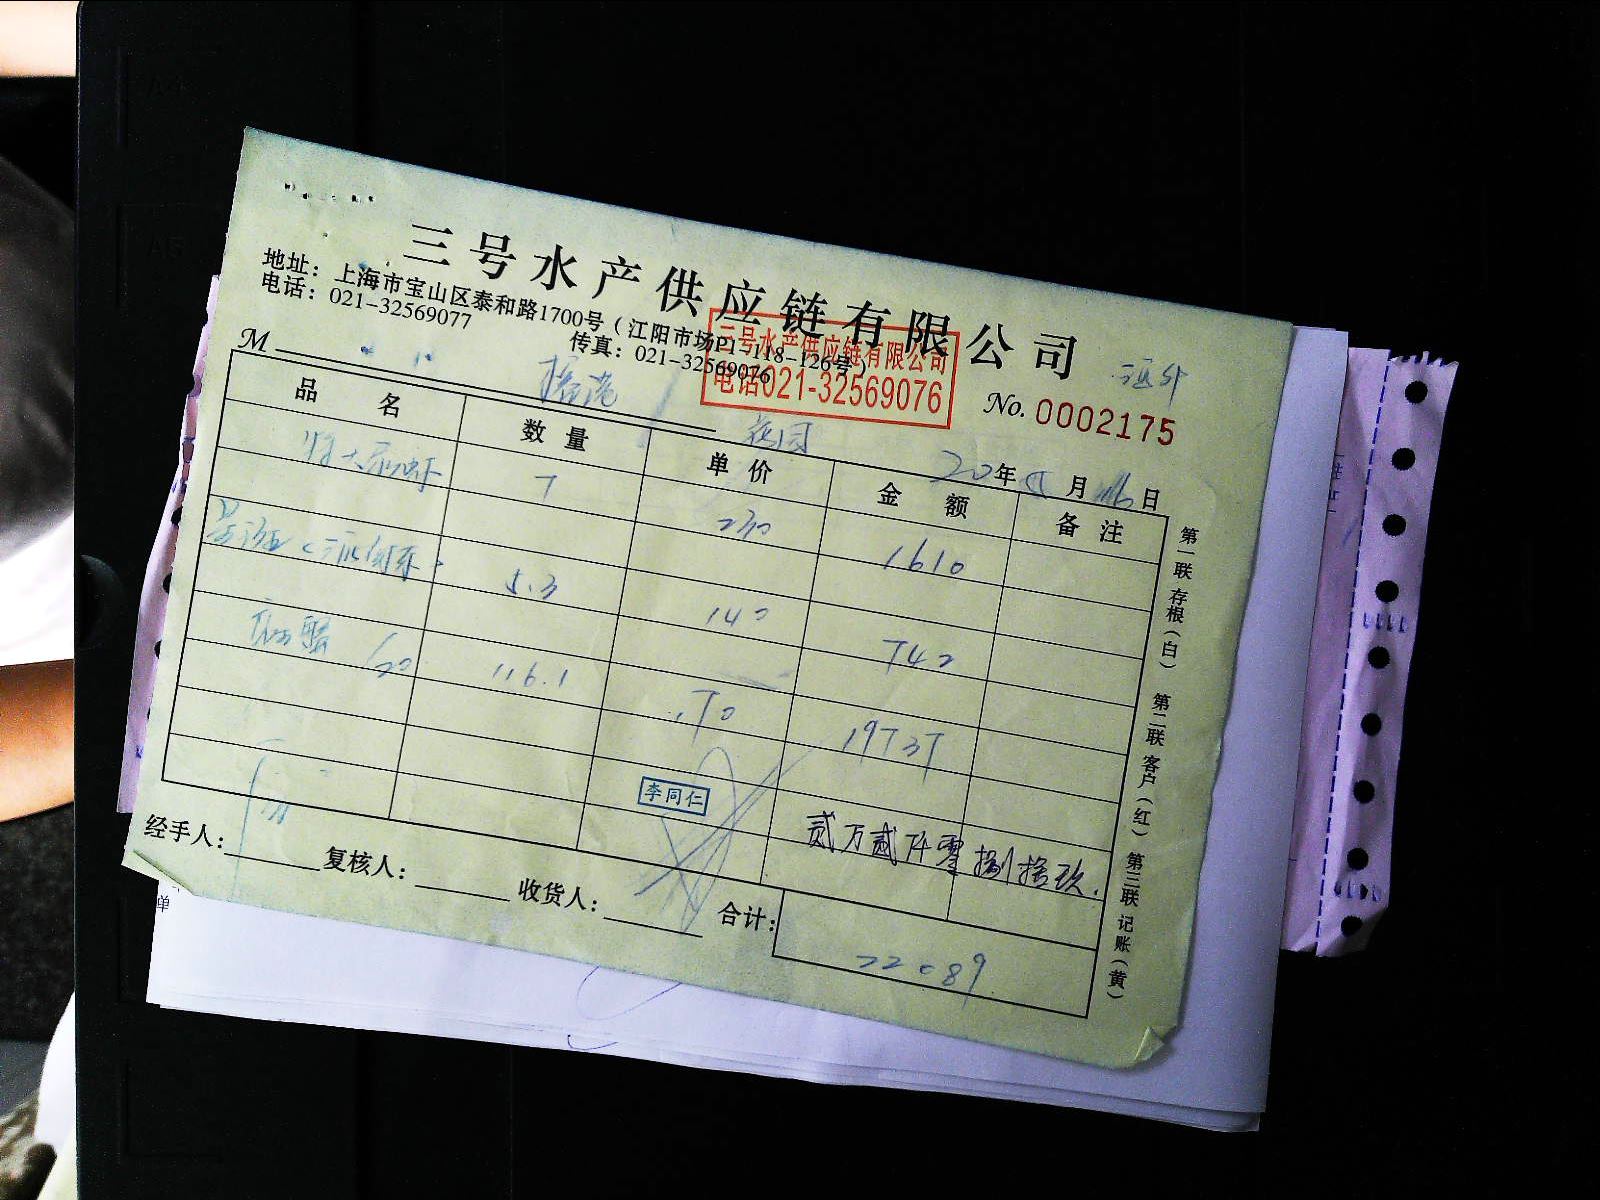 三号水产供应链有限公司
地址：上海市宝山区泰和路1700号（江阳市场P1-118-126号）
电话：021-32569077 传真：021-32569076
三号水产供应链有限公司
电话021-32569076
M
No. 0002175
花园
20年 月 日
品名 数量 单价 金额 备注
7 230 1610
5.3 140 742
蟹 116.1 170 19737
李同仁
贰万贰仟零捌拾玖.
经手人： 复核人： 收货人： 合计：
22089
第一联 存根（白） 第二联 客户（红） 第三联 记账（黄）
单